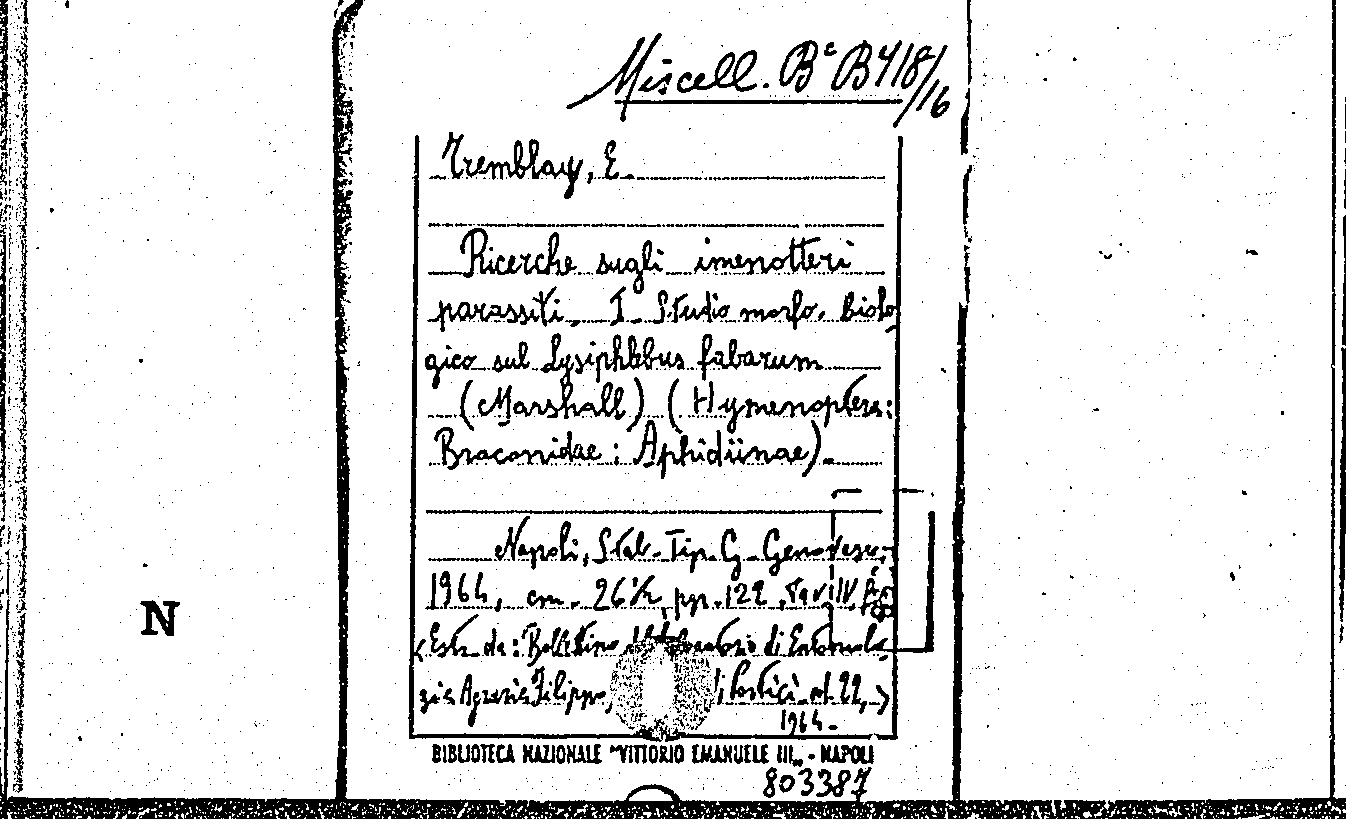 Miscell. Bc B 418/16
Tremblay, E.
Ricerche sugli imenotteri
parassiti. I. Studio morfo. biolo
gico sul Lysiphlebus fabarum
(Marshall) (Hymenoptera:
Braconidae: Aphidiinae).
Napoli, Stab. Tip. G. Genovese,
1964, cm. 26½, pp. 122, Tav. IV
(Estr. da: Bollettino di Entomolo
gia Agraria Filippo di Portici vol. 22,)
1964.
BIBLIOTECA NAZIONALE "VITTORIO EMANUELE III„ - NAPOLI
803387
N